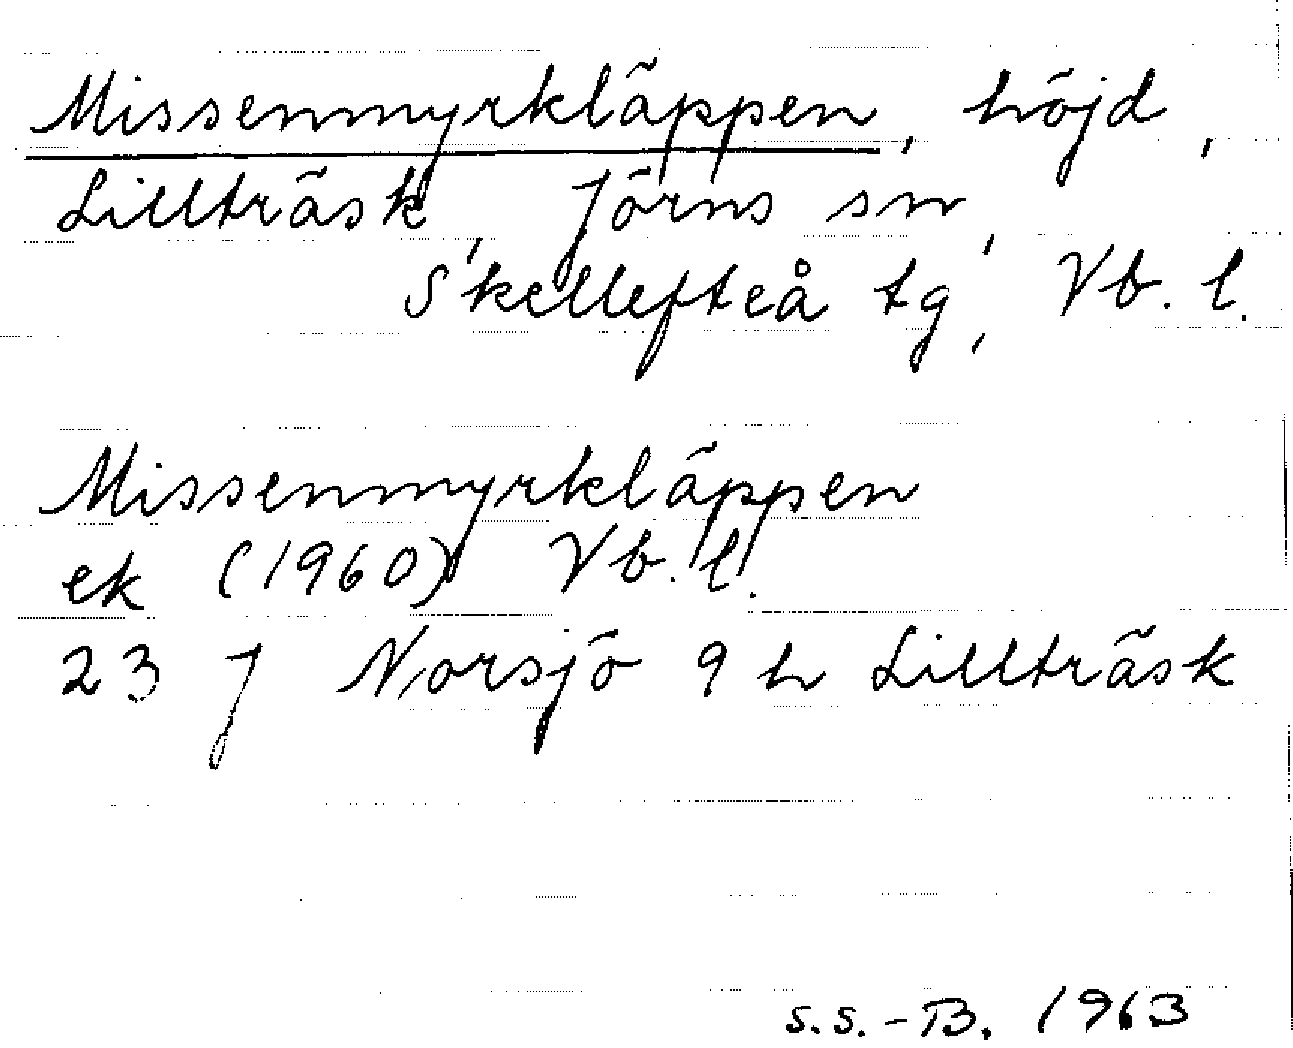 Missenmyrkläppen, höjd,
Lillträsk, Jörns sn,
Skellefteå tg, Vb. l.
Missenmyrkläppen
ek (1960) Vb. l.
23 J Norsjö 9 h Lillträsk
S.S.-B. 1963